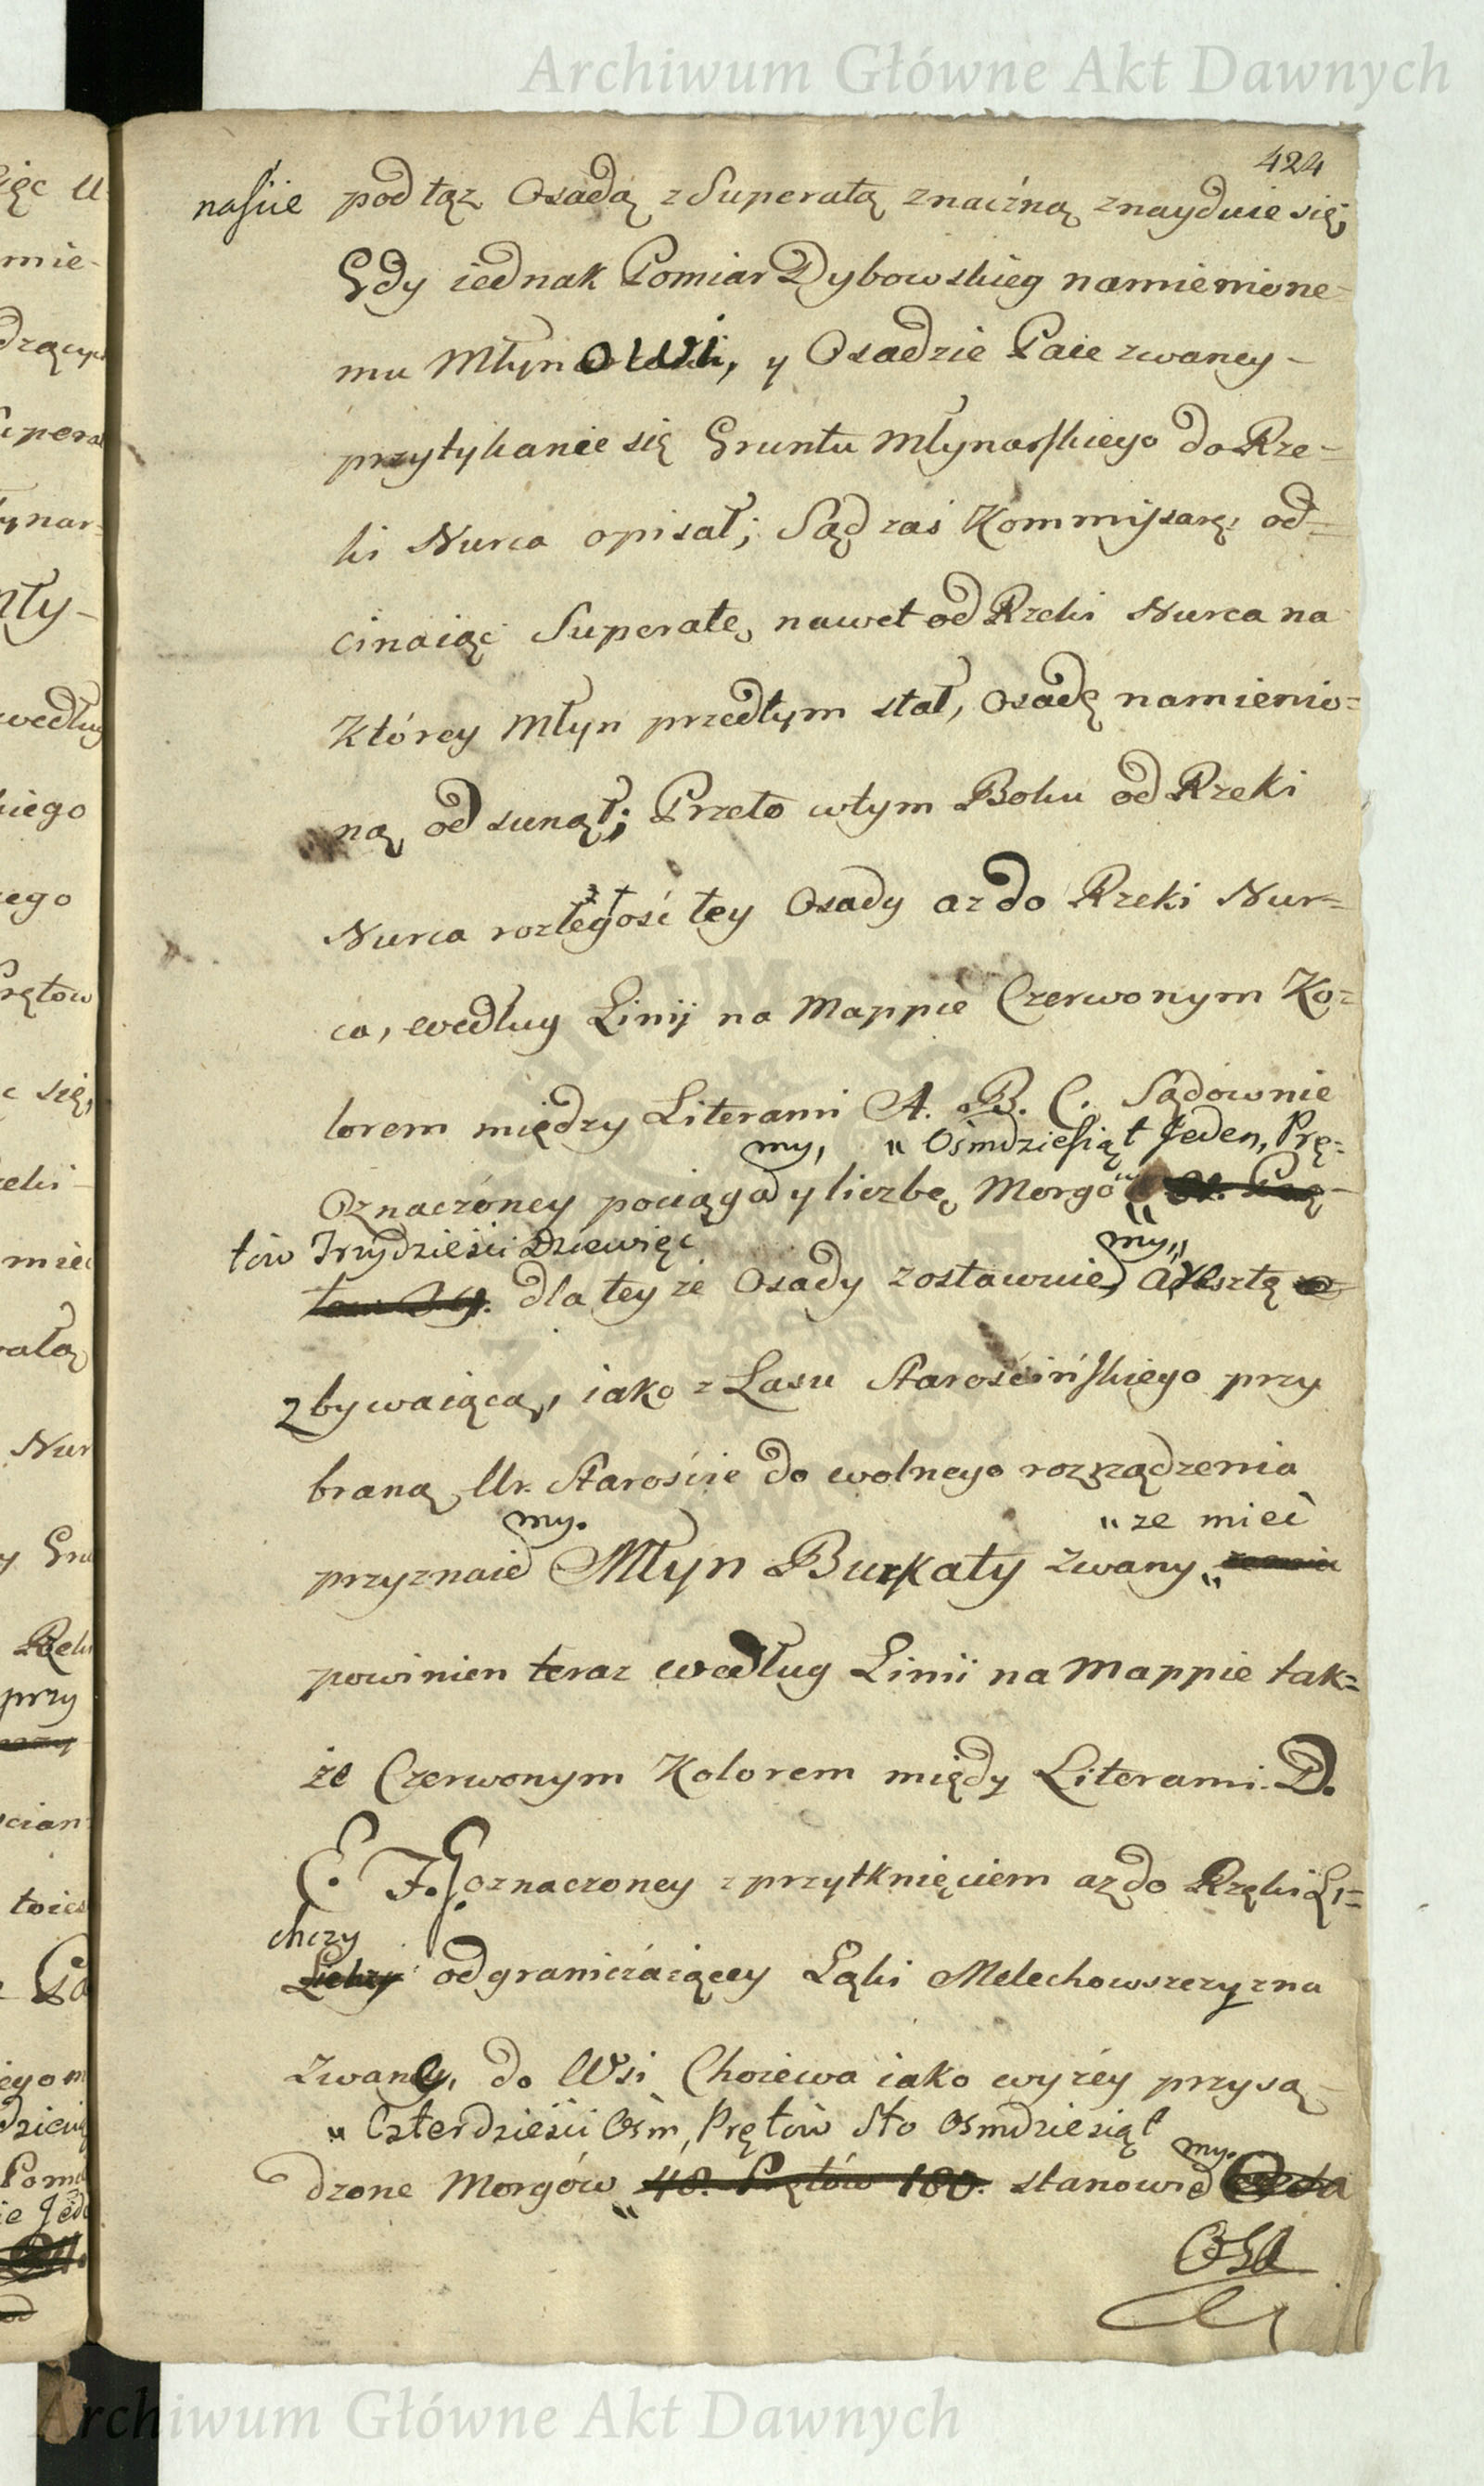 Archiwum Główne Akt Dawnych
424
pod tąż Osadą z Superatą znaczną znayduie się,
Gdy iednak Pomiar Dybowskieg namienione-
mu Młynowi, y Osadzie Paie zwaney-
przytykanie się Gruntu Młynarskiego do Rze-
ki Nurca opisał; Sąd zaś Kommissarz: od-
cinaiąc Superatę, nawet od Rzeki Nurca na
Którey Młyn przedtym stał, Osadę namienio-
ną odsunął; Przeto w tym Boku od Rzeki
Nurca rozległość tey Osady aż do Rzeki Nur-
ca, według Linij na Mappie Czerwonym Ko-
lorem między Literami A. B. C. Sądownie
my, " Ośmdziesiąt Jeden, Prę-
Oznaczoney pociąga y liczbę Morgów
tów Trzydzieści Dziewięć
my,"
dla tey że Osady zostawuie, a resztę
zbywaiącą, iako z Lasu Starościńskiego przy
braną Ur. Starościе do wolnego rozrządzenia
my. " ze mieć
przyznaie Młyn Burkaty zwany "
powinien teraz według Linii na Mappie tak-
że Czerwonym Kolorem między Literami. D.
E. F. G. oznaczoney z przytknięciem aż do Rzęki Li-
chzy
Lichzy odgraniczaiącey Łąki Melechowszczyzna
zwaney, do Wsi Chożewa iako wyżéy przysą-
" Czterdzieści Ośm, Prętów Sto Ośmdziesiąt
my.
dzone Morgów " 48. Prętów 180. stanowie
Osa
Archiwum Główne Akt Dawnych